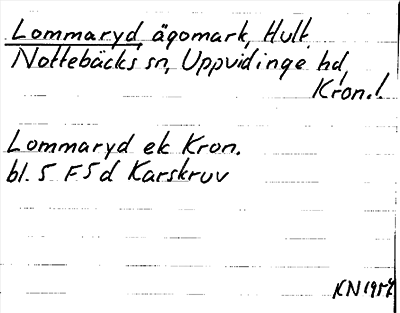 Lommaryd ägomark, Hult
Nottebäcks sn, Uppvidinge hd,
Kron.l.
Lommaryd ek Kron.
bl. 5 F 5 d Karskruv
KN 1957